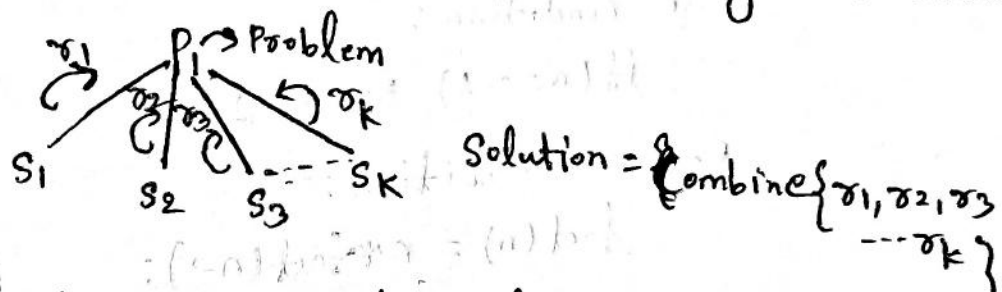 r1 P1 → Problem
r2 r3 rk
S1 S2 S3 ---- SK
Solution = Combine{r1, r2, r3
---rk}